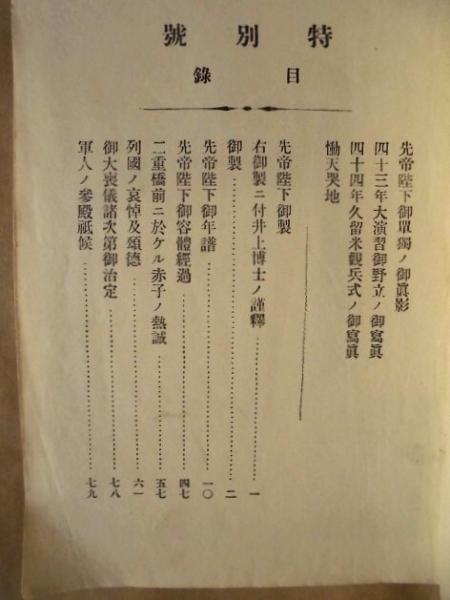 特別號
目錄
先帝陛下御單獨ノ御眞影
四十三年大演習御野立ノ御寫眞
四十四年久留米觀兵式ノ御寫眞
慟天哭地
先帝陛下御製
右御製ニ付井上博士ノ謹釋………一
御製………二
先帝陛下御年譜………一〇
先帝陛下御容體經過………四七
二重橋前ニ於ケル赤子ノ熱誠………五七
列國ノ哀悼及頌德………六一
御大喪儀諸次第御治定………七八
軍人ノ參殿祗候………七九